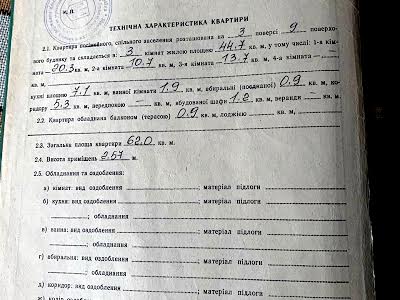 М. П.
ТЕХНІЧНА ХАРАКТЕРИСТИКА КВАРТИРИ
2.1. Квартира посімейного, спільного заселення розташована на 3 поверсі 9 поверхо-
вого будинку та складається з 3 кімнат жилою площею 44.7 кв. м, у тому числі: 1-а кім-
ната 20.3 кв. м, 2-а кімната 10.7 кв. м, 3-я кімната 13.7 кв. м, 4-а кімната —
кв. м,
кухні площею 7.1 кв. м, ванної кімнати 1.9 кв. м, вбиральні (поєднаної) 0.9 кв. м, ко-
ридору 5.3 кв. м, передпокою — кв. м, вбудованої шафи 1.2 кв. м, веранди кв. м.
2.2. Квартира обладнана балконом (терасою) 0.9 кв. м, лоджією кв. м,
2.3. Загальна площа квартири 62.0 кв. м.
2.4. Висота приміщень 2.57 м.
2.5. Обладнання та оздоблення:
а) кімнат: вид оздоблення ; матеріал підлоги
б) кухня: вид оздоблення ; матеріал підлоги
; обладнання
в) ванна: вид оздоблення ; матеріал підлоги
; обладнання
г) вбиральня: вид оздоблення ; матеріал підлоги
; обладнання
д) коридор: вид оздоблення ; матеріал підлоги